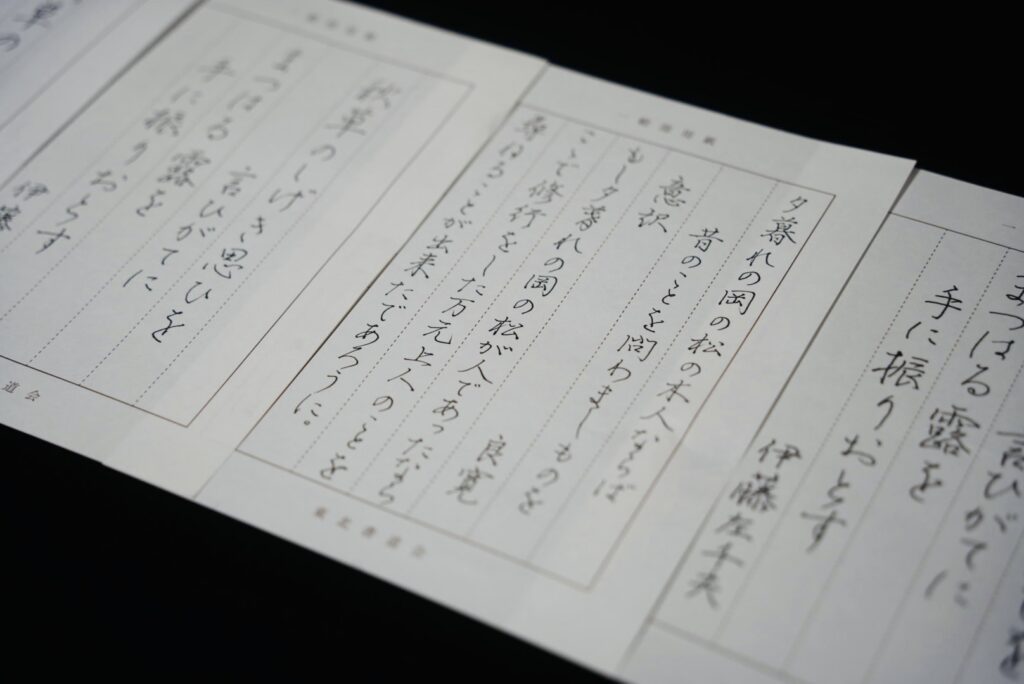 言ひがてに
まつはる露を
手に振りおとす
伊藤左千夫
夕暮れの岡の松の木人ならば
昔のことを問わましものを
意訳　良寛
もし夕暮れの岡の松が人であったなら
ここで修行をした万元上人のことを
尋ねることが出来たであろうに。
東北書道会
秋草のしげき思ひを
言ひがてに
まつはる露を
手に振りおとす
伊藤
道会
草の